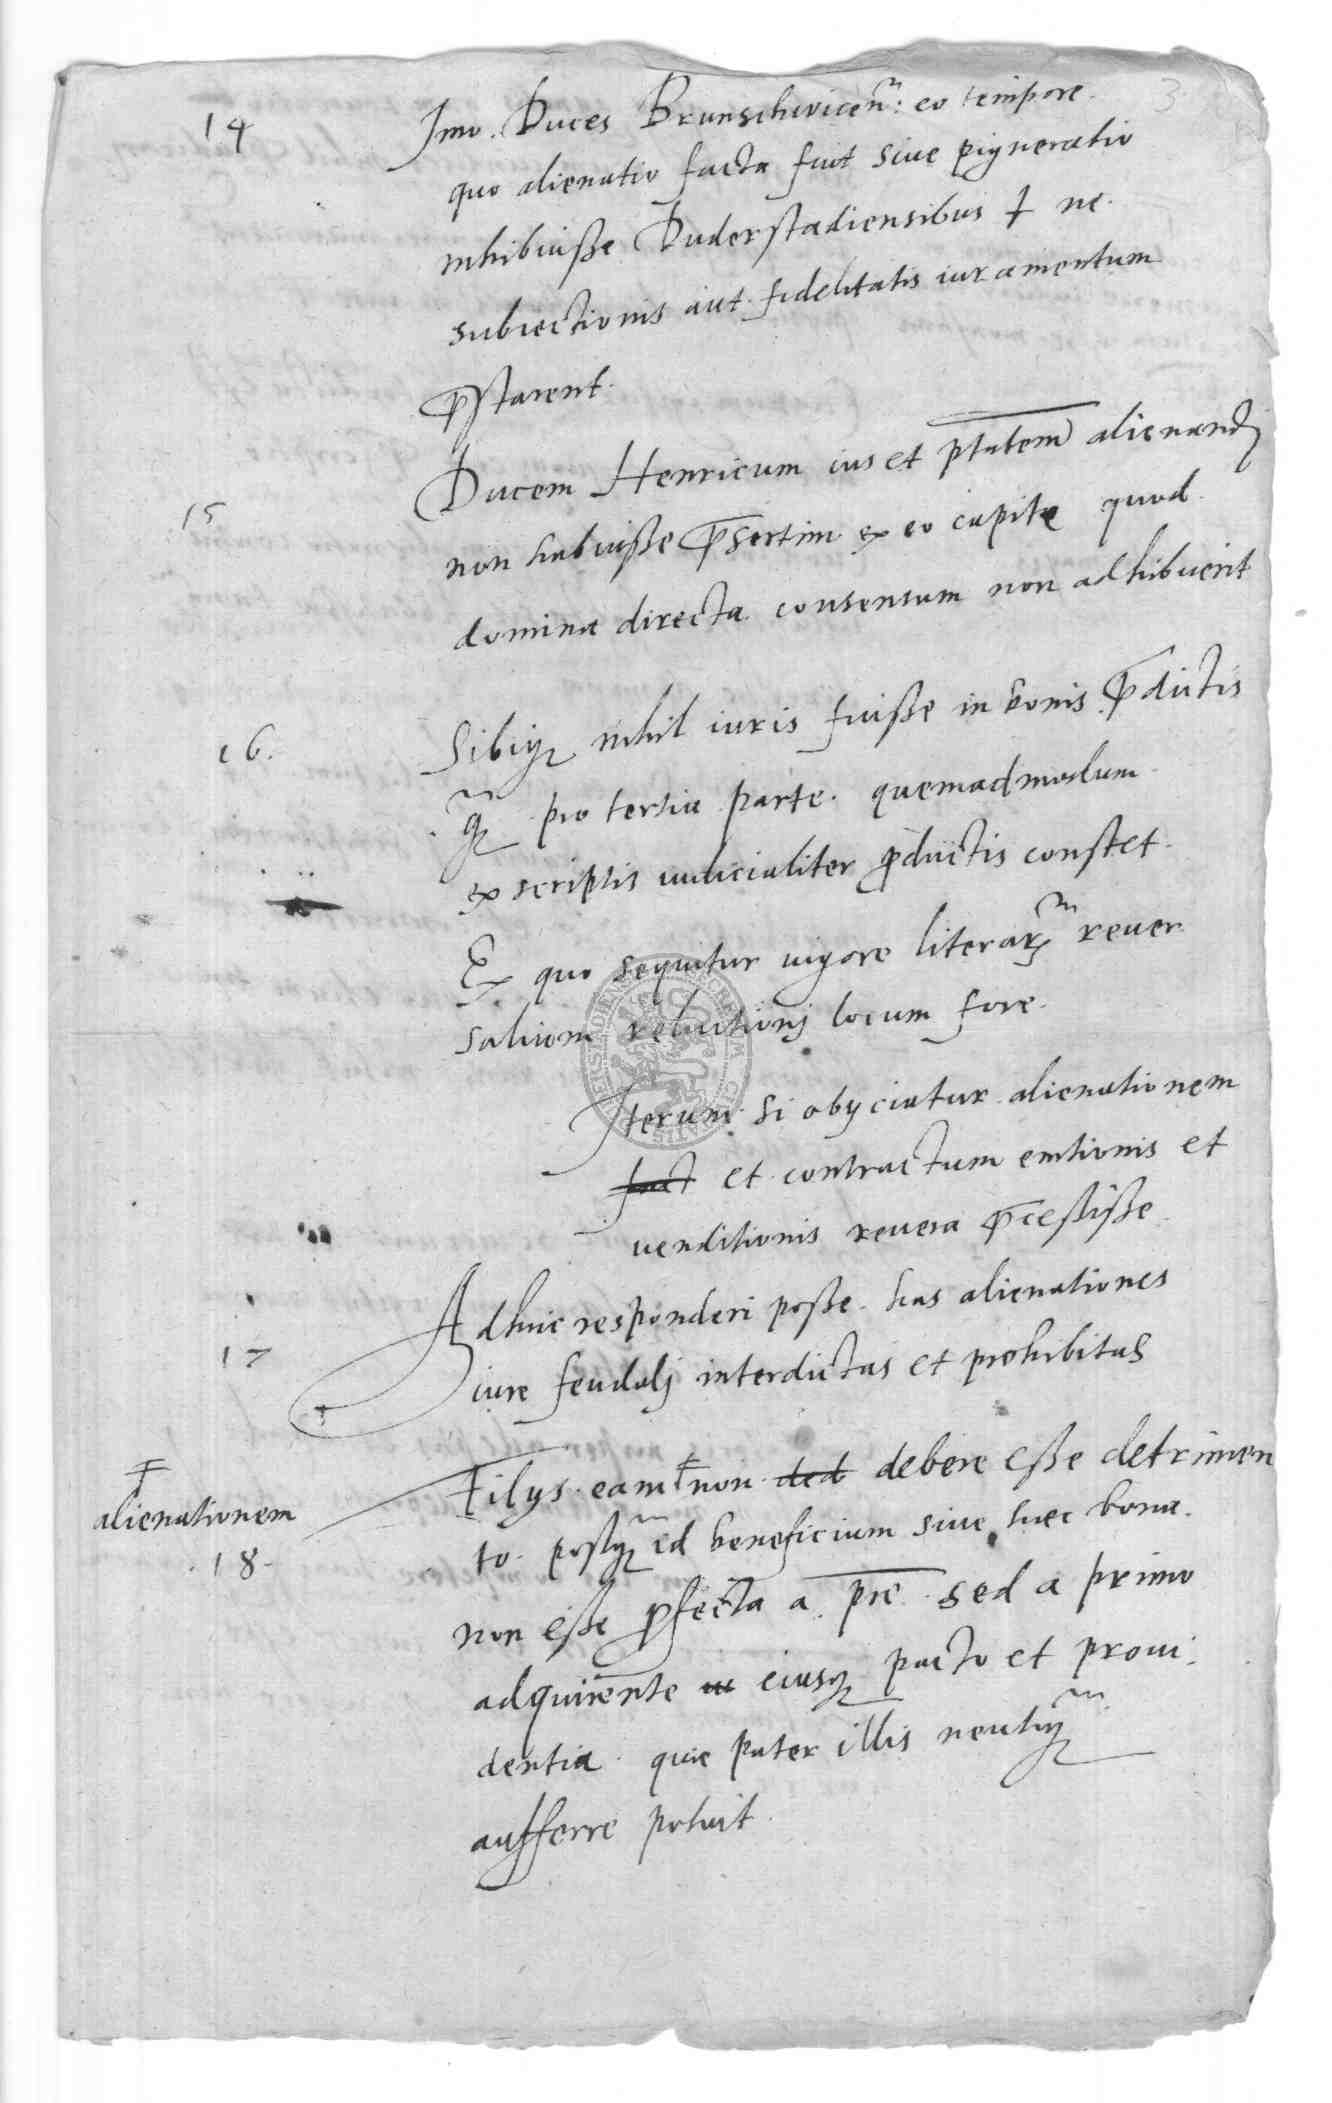 3
14
Imo. Duces Brunschwicen̄: eo tempore.
quo alienatio facta fuit siue pigneratio
inhibuisse Duderstadiensibus ‡ ne.
subiectionis aut fidelitatis iuramentum
p̄starent.
15
Ducem Henricum ius et ptatem̄ alienandj
non habuiße p̄sertim ex eo capite quod
domina directa consensum non adhibuerit
16.
Sibiq₃ nihil iuris fuiße in bonis p̄dictis
q̃₃ pro tertia parte. quemadmodum
ex scriptis iudicialiter ꝓductis constet.
Ex quo sequitur uigore literaꝝ̃ reuer
salium reluitionj locum fore.
Iterum si obijciatur alienationem
fuit et contractum emtionis et
uenditionis reuera p̄ceßiße
17
Adhuc responderi poße. has alienationes
iure feudalj interdictas et prohibitas
Filijs eam ‡ non ded debere eße detrimen
‡
alienationem
18.
to. postq̃₃ id beneficium siue haec bona.
non eße ꝓfecta a pr̄e sed a primo
adquirente in eiusq₃ pacto et proui.
dentia. quae pater illis neutiq̃₃
aufferre potuit.